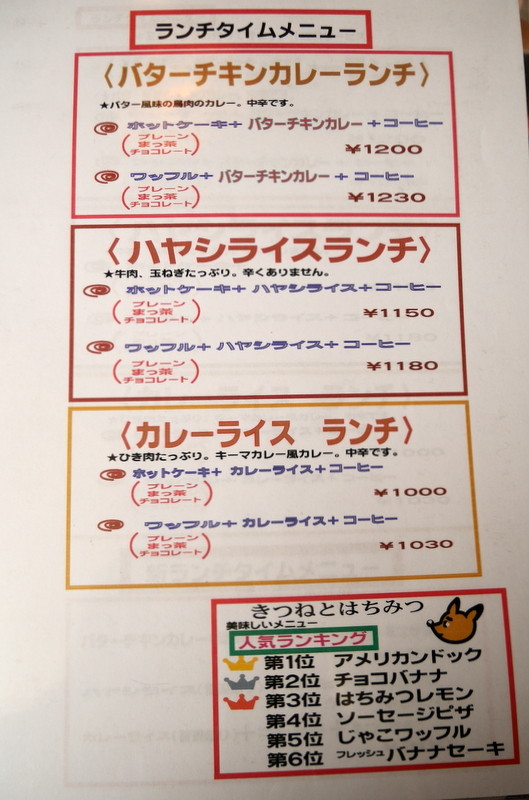 ランチタイムメニュー
〈バターチキンカレーランチ〉
★バター風味の鶏肉のカレー。中辛です。
ホットケーキ+バターチキンカレー+コーヒー
(プレーン
まっ茶
チョコレート)
¥1200
ワッフル+バターチキンカレー+コーヒー
(プレーン
まっ茶
チョコレート)
¥1230
〈ハヤシライスランチ〉
★牛肉、玉ねぎたっぷり。辛くありません。
ホットケーキ+ハヤシライス+コーヒー
(プレーン
まっ茶
チョコレート)
¥1150
ワッフル+ハヤシライス+コーヒー
(プレーン
まっ茶
チョコレート)
¥1180
〈カレーライス ランチ〉
★ひき肉たっぷり。キーマカレー風カレー。中辛です。
ホットケーキ+カレーライス+コーヒー
(プレーン
まっ茶
チョコレート)
¥1000
ワッフル+カレーライス+コーヒー
(プレーン
まっ茶
チョコレート)
¥1030
きつねとはちみつ
美味しいメニュー
人気ランキング
第1位 アメリカンドック
第2位 チョコバナナ
第3位 はちみつレモン
第4位 ソーセージピザ
第5位 じゃこワッフル
第6位 フレッシュバナナセーキ